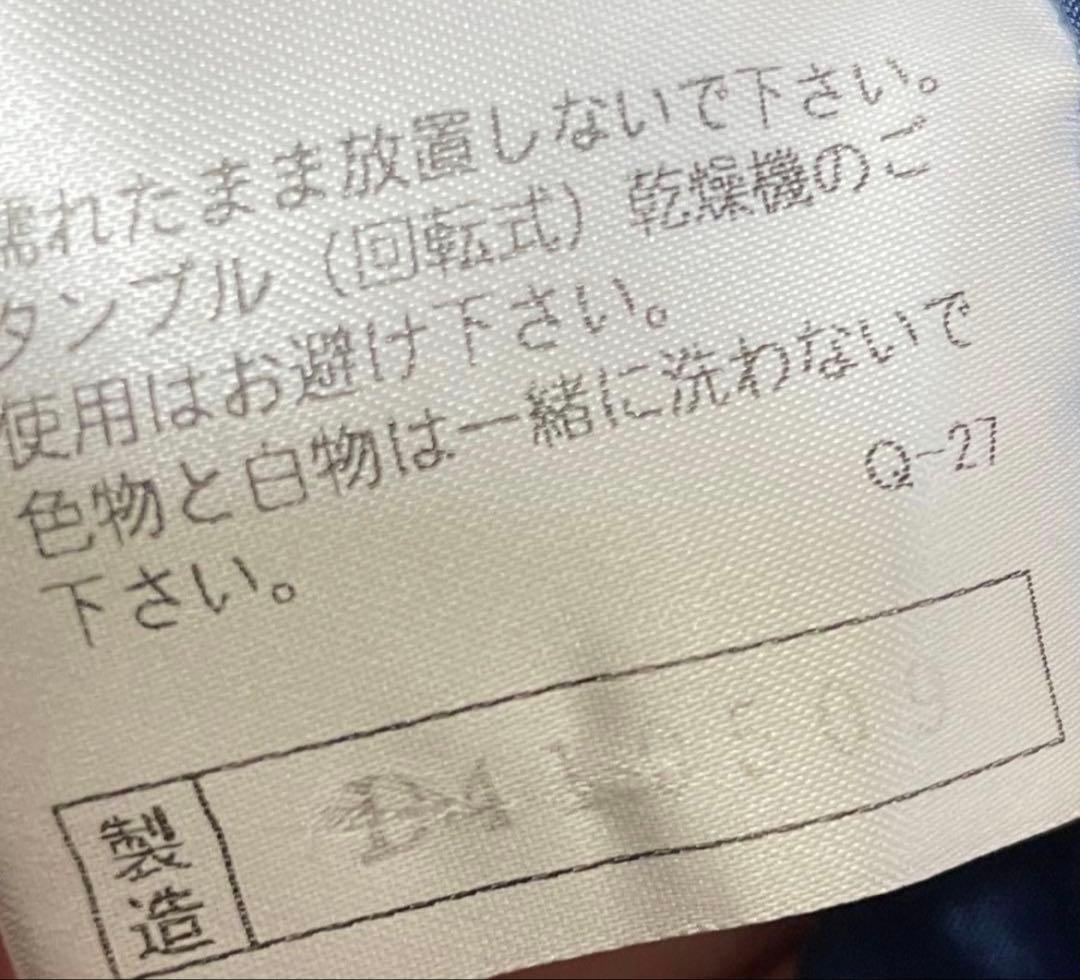 濡れたまま放置しないで下さい。
タンブル（回転式）乾燥機のご
使用はお避け下さい。
色物と白物は一緒に洗わないで
下さい。
Q-27
製造